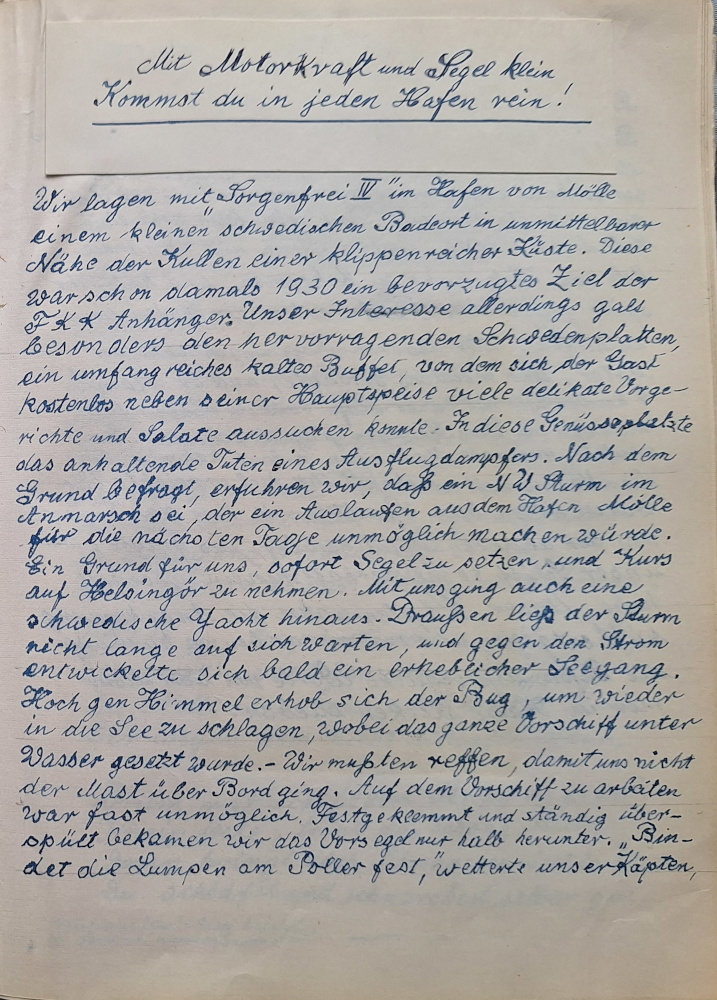 Mit Motorkraft und Segel klein
Kommst du in jeden Hafen rein!
Wir lagen mit „Sorgenfrei IV" im Hafen von Mölle
einem kleinen schwedischen Badeort in unmittelbarer
Nähe der Kullen einer klippenreicher Küste. Diese
war schon damals 1930 ein bevorzugtes Ziel der
FKK Anhänger. Unser Interesse allerdings galt
besonders den hervorragenden Schwedenplatten,
ein umfangreiches kaltes Buffet, von dem sich der Gast
kostenlos neben seiner Hauptspeise viele delikate Vorge-
richte und Salate aussuchen konnte. In diese Genüsse platzte
das anhaltende Tuten eines Ausflugdampfers. Nach dem
Grund befragt, erfuhren wir, daß ein NW Sturm im
Anmarsch sei, der ein Auslaufen aus dem Hafen Mölle
für die nächsten Tage unmöglich machen würde.
Ein Grund für uns, sofort Segel zu setzen und Kurs
auf Helsingör zu nehmen. Mit uns ging auch eine
schwedische Yacht hinaus. Draußen ließ der Sturm
nicht lange auf sich warten, und gegen den Strom
entwickelte sich bald ein erheblicher Seegang.
Hoch gen Himmel erhob sich der Bug, um wieder
in die See zu schlagen, wobei das ganze Vorschiff unter
Wasser gesetzt wurde. – Wir mußten reffen, damit uns nicht
der Mast über Bord ging. Auf dem Vorschiff zu arbeiten
war fast unmöglich. Festgeklemmt und ständig über-
spült bekamen wir das Vorsegel nur halb herunter. „Bin-
det die Lumpen am Poller fest," wetterte unser Käpten,